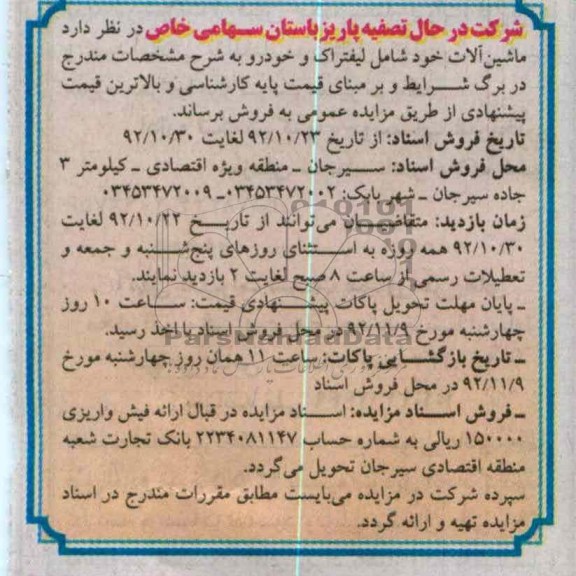 شرکت در حال تصفیه پاریز باستان سهامی خاص در نظر دارد
ماشین‌آلات خود شامل لیفتراک و خودرو به شرح مشخصات مندرج
در برگ شرایط و بر مبنای قیمت پایه کارشناسی و بالاترین قیمت
پیشنهادی از طریق مزایده عمومی به فروش برساند.
تاریخ فروش اسناد: از تاریخ ۹۲/۱۰/۲۳ لغایت ۹۲/۱۰/۳۰
محل فروش اسناد: سیرجان ـ منطقه ویژه اقتصادی ـ کیلومتر ۳
جاده سیرجان ـ شهر بابک: ۰۳۴۵۳۴۷۲۰۰۲ـ ۰۳۴۵۳۴۷۲۰۰۹
زمان بازدید: متقاضیان می‌توانند از تاریخ ۹۲/۱۰/۲۲ لغایت
۹۲/۱۰/۳۰ همه روزه به استثنای روزهای پنج‌شنبه و جمعه و
تعطیلات رسمی از ساعت ۸ صبح لغایت ۲ بازدید نمایند.
ـ پایان مهلت تحویل پاکات پیشنهادی قیمت: ساعت ۱۰ روز
چهارشنبه مورخ ۹۲/۱۱/۹ در محل فروش اسناد با اخذ رسید.
ParsNamadData
ـ تاریخ بازگشایی پاکات: ساعت ۱۱ همان روز چهارشنبه مورخ
۹۲/۱۱/۹ در محل فروش اسناد
ـ فروش اسناد مزایده: اسناد مزایده در قبال ارائه فیش واریزی
۱۵۰۰۰۰ ریالی به شماره حساب ۲۲۳۴۰۸۱۱۴۷ بانک تجارت شعبه
منطقه اقتصادی سیرجان تحویل می‌گردد.
سپرده شرکت در مزایده می‌بایست مطابق مقررات مندرج در اسناد
مزایده تهیه و ارائه گردد.